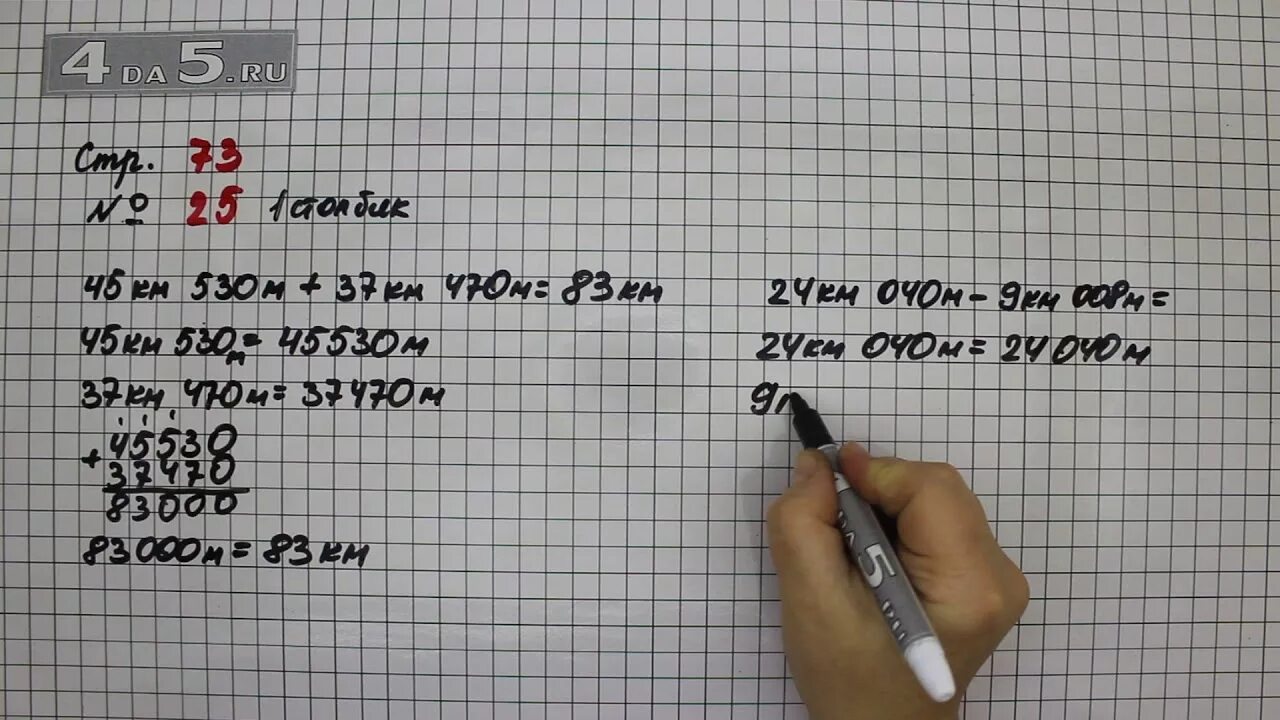 4DA5.RU
Стр. 73
№ 25 1 столбик
45км 530м + 37км 470м = 83км
45км 530м = 45530м
37км 470м = 37470м
+ 45530
37470
83000
83000м = 83км
24км 040м - 9км 008м =
24км 040м = 24040м
9
DA 5.RU